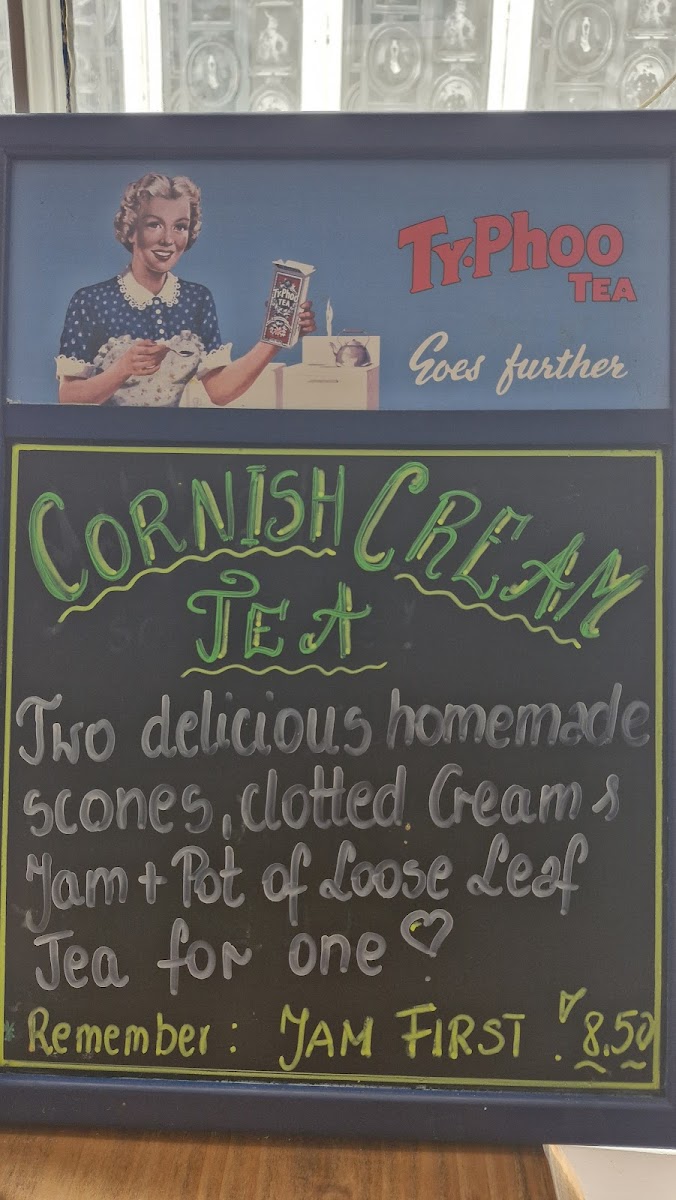 TY·PHOO
TEA
TY·PHOO
TEA
Goes further
CORNISH CREAM
TEA
Two delicious homemade
scones, clotted Cream &
Jam + Pot of Loose Leaf
Tea for one ♡
* Remember: JAM FIRST ! 8.50